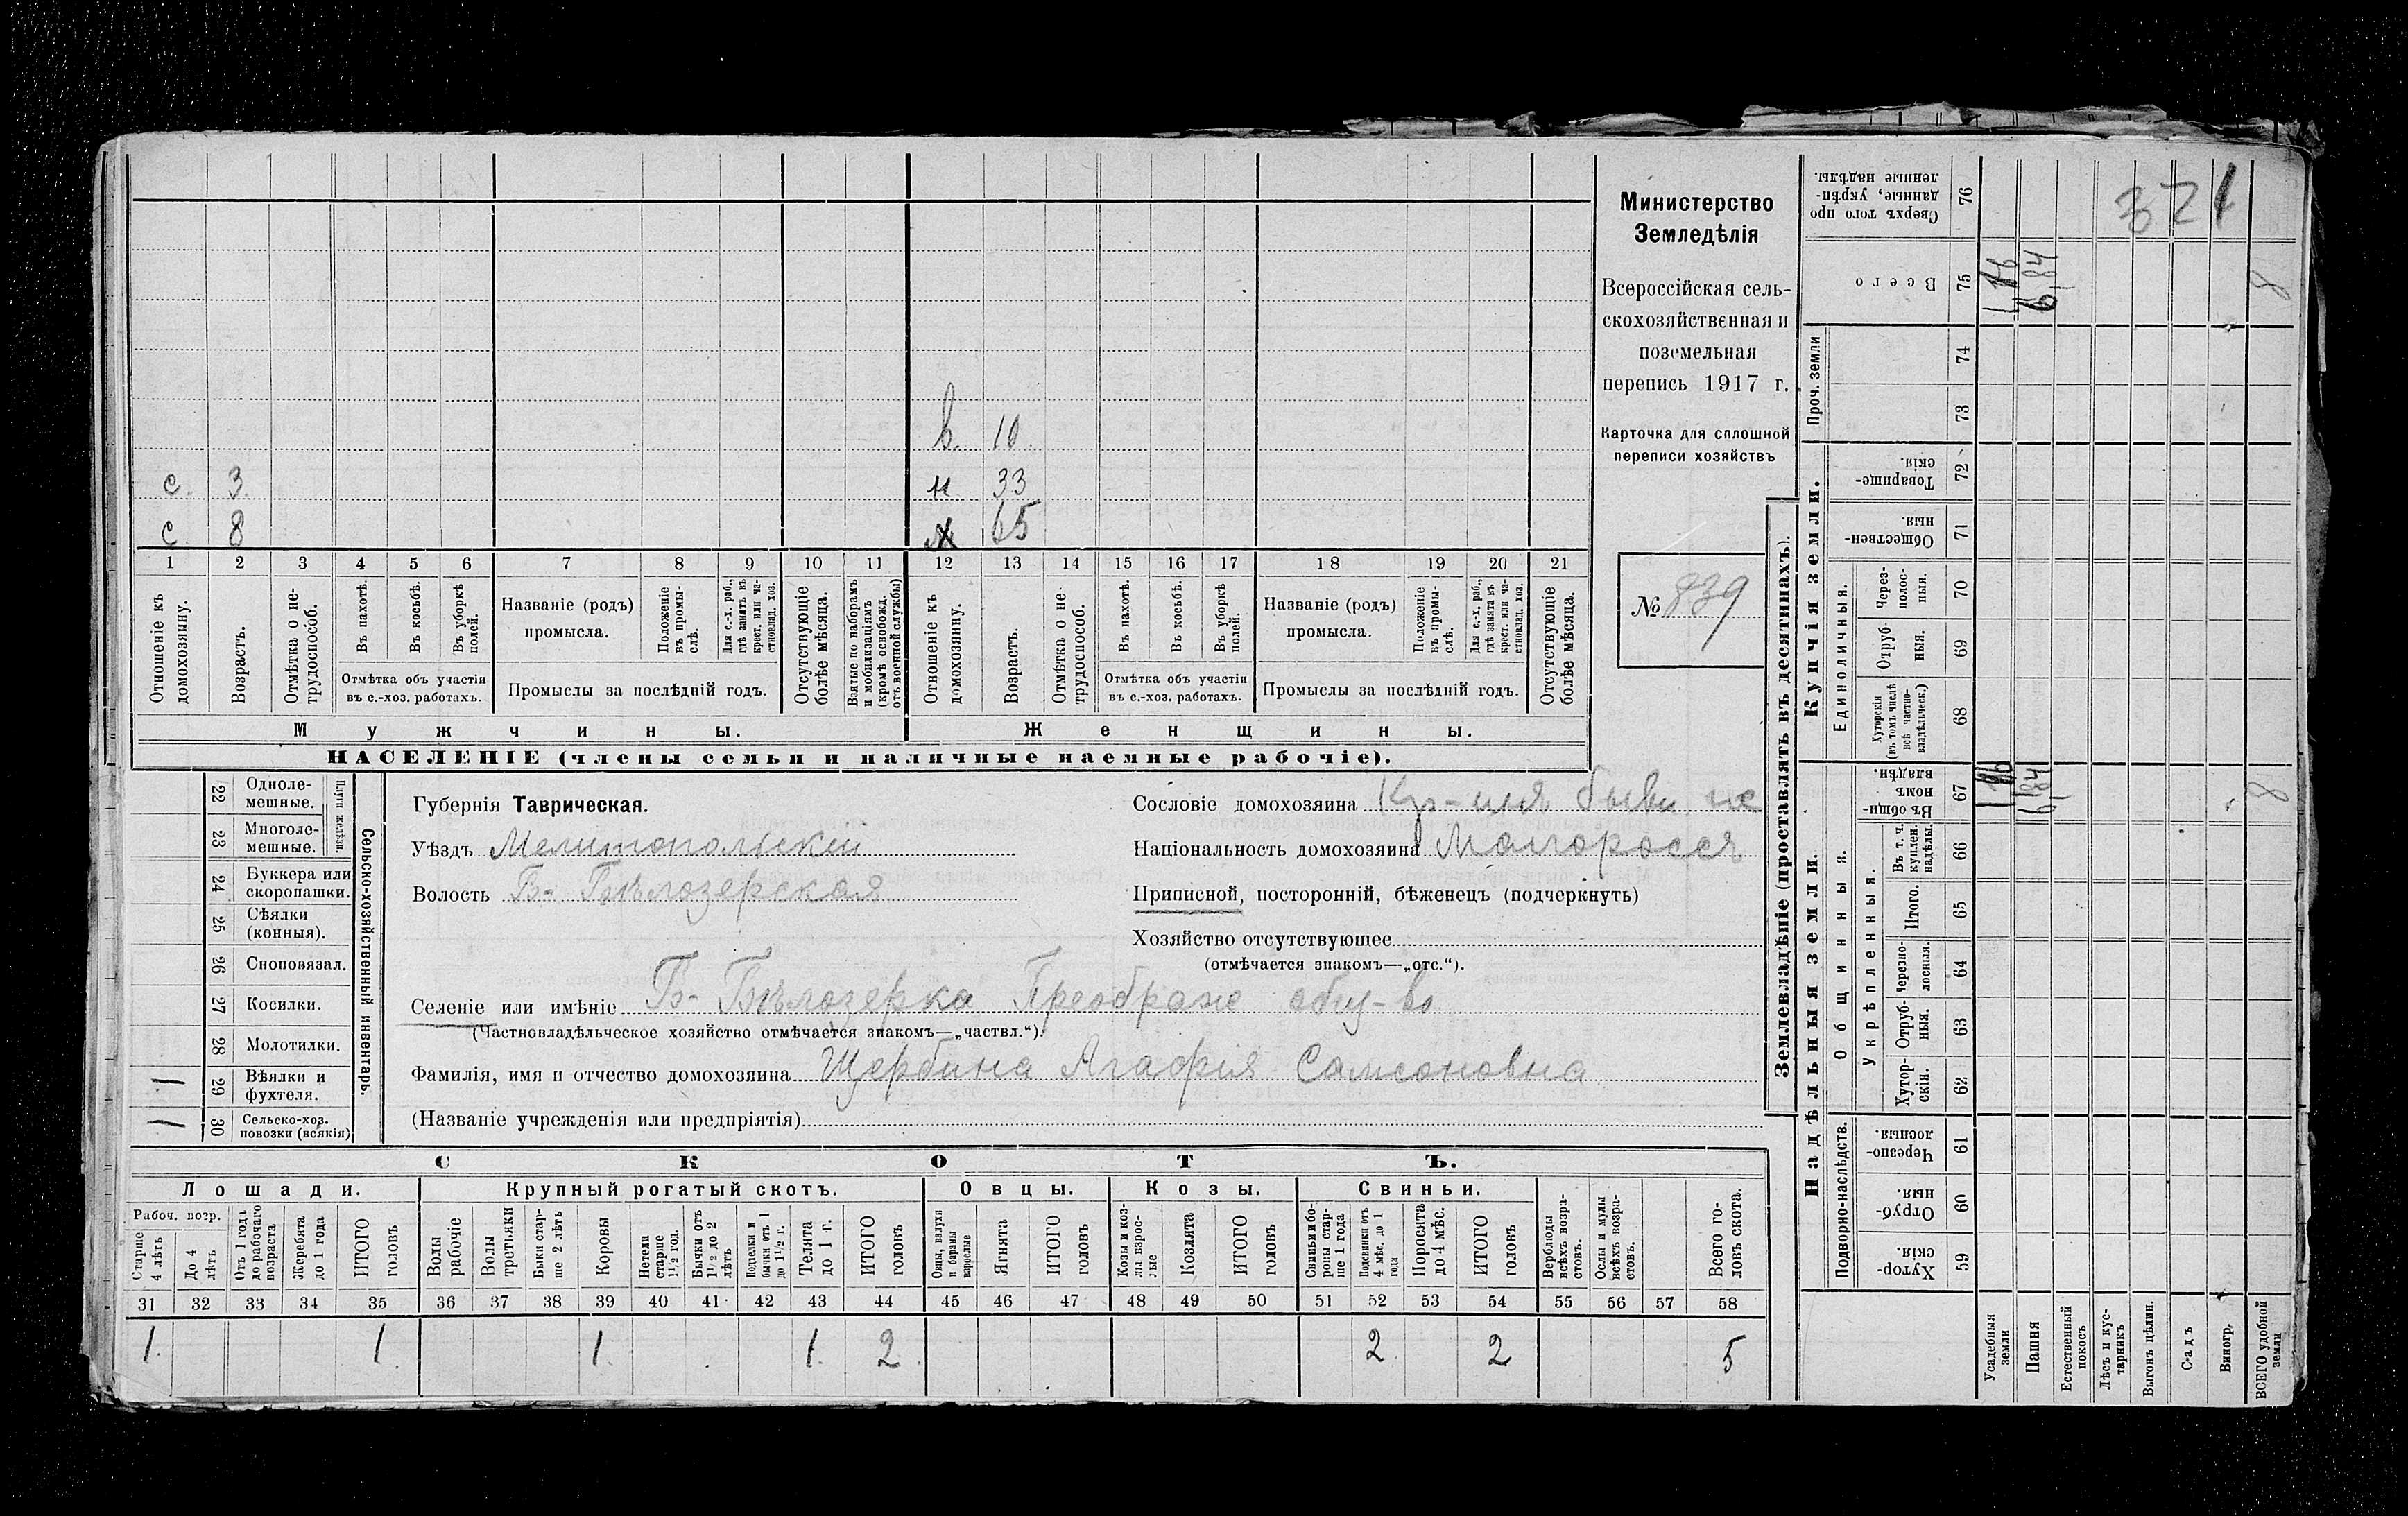 321
в. 10.
с. 3. н 33
с 8 х 65
1 2 3 4 5 6 7 8 9 10 11 12 13 14 15 16 17 18 19 20 21
Отношеніе къ домохозяину.
Возрастъ.
Отмѣтка о не-трудоспособ.
Въ пахотѣ.
Въ косьбѣ.
Въ уборкѣ полей.
Отмѣтка объ участіи
въ с.-хоз. работахъ.
Названіе (родъ)
промысла.
Положеніе въ промы-слѣ.
Для с.-х. раб., гдѣ занятъ въ крест. или ча-стновлад. хоз.
Промыслы за послѣдній годъ.
Отсутствующіе болѣе мѣсяца.
Взятые по наборамъ и мобилизаціямъ (кромѣ освобожд. отъ военной службы)
Отношеніе къ домохозяину.
Возрастъ.
Отмѣтка о не-трудоспособ.
Въ пахотѣ.
Въ косьбѣ.
Въ уборкѣ полей.
Отмѣтка объ участіи
въ с.-хоз. работахъ.
Названіе (родъ)
промысла.
Положеніе въ промы-слѣ.
Для с.-х. раб., гдѣ занята въ крест. или ча-стновлад. хоз.
Промыслы за послѣдній годъ.
Отсутствующіе болѣе мѣсяца.
Мужчины. Женщины.
НАСЕЛЕНІЕ (члены семьи и наличные наемные рабочіе).
Министерство
Земледѣлія
Всероссійская сель-
скохозяйственная и
поземельная
перепись 1917 г.
Карточка для сплошной
переписи хозяйствъ
№ 839
22 Одноле-мешные.
23 Многоле-мешные.
Плуги желѣзн.
24 Буккера или скоропашки.
25 Сѣялки (конныя).
26 Сноповязал.
27 Косилки.
28 Молотилки.
1 29 Вѣялки и фухтеля.
1 30 Сельско-хоз. повозки (всякія)
Сельско-хозяйственный инвентарь.
Губернія Таврическая.
Уѣздъ Мелитопольскій
Волость Б- Бѣлозерская
Сословіе домохозяина Кр-нин бывш. гос
Національность домохозяина Малороссъ
Приписной, посторонній, бѣженецъ (подчеркнуть)
Хозяйство отсутствующее
(отмѣчается знакомъ—„отс.“).
Селеніе или имѣніе Б- Бѣлозерка Преображ общ-во
(Частновладѣльческое хозяйство отмѣчается знакомъ—„частвл.“).
Фамилія, имя и отчество домохозяина Щербина Агафія Самсоновна
(Названіе учрежденія или предпріятія)
СКОТЪ.
Лошади. Крупный рогатый скотъ. Овцы. Козы. Свиньи.
Рабоч. возр.
Старше 4 лѣтъ
До 4 лѣтъ
Отъ 1 года до рабочаго возраста
Жеребята до 1 года
ИТОГО головъ
Волы рабочіе
Волы третьяки
Быки стар-ше 2 лѣтъ
Коровы
Нетели старше 1½ год.
Бычки отъ 1½ до 2 лѣтъ
Подтелки и бычки отъ 1 до 1½ г.
Телята до 1 г.
ИТОГО головъ
Овцы, валухи и бараны взрослые
Ягнята
ИТОГО головъ
Козы и коз-лы взрос-лые
Козлята
ИТОГО головъ
Свиньи и бо-ровы стар-ше 1 года
Подсвинки отъ 4 мѣс. до 1 года
Поросята до 4 мѣс.
ИТОГО головъ
Верблюды всѣхъ возра-стовъ.
Ослы и мулы всѣхъ возра-стовъ.
Всего го-ловъ скота.
31 32 33 34 35 36 37 38 39 40 41 42 43 44 45 46 47 48 49 50 51 52 53 54 55 56 57 58
1. 1. 1. 1. 2. 2. 2 5
Землевладѣніе (проставлять въ десятинахъ).
Надѣльныя земли. Купчія земли. Проч. земли
Подворно-наслѣдств.
Общинныя.
Укрѣпленныя.
Единоличныя.
Хутор-скія. 59
Отруб-ныя. 60
Черезпо-лосныя. 61
Хутор-скія. 62
Отруб-ныя. 63
Черезпо-лосныя. 64
Итого. 65
Въ т. ч. куплен. надѣлы. 66
Въ общин-номъ владѣн. 67
Хуторскія (въ томъ числѣ всѣ частно-владѣльческ.) 68
Отруб-ныя. 69
Через-полос-ныя. 70
Обществен-ныя. 71
Товарище-скія. 72
73
74
Всего 75
Сверхъ того про-данные, укрѣп-ленные надѣлы. 76
Усадебныя земли
Пашня 6,84 6,84
Естественный покосъ
Лѣсъ и кус-тарникъ
Выгонъ цѣлин.
С-адъ
Виногр.
ВСЕГО удобной земли 8 8